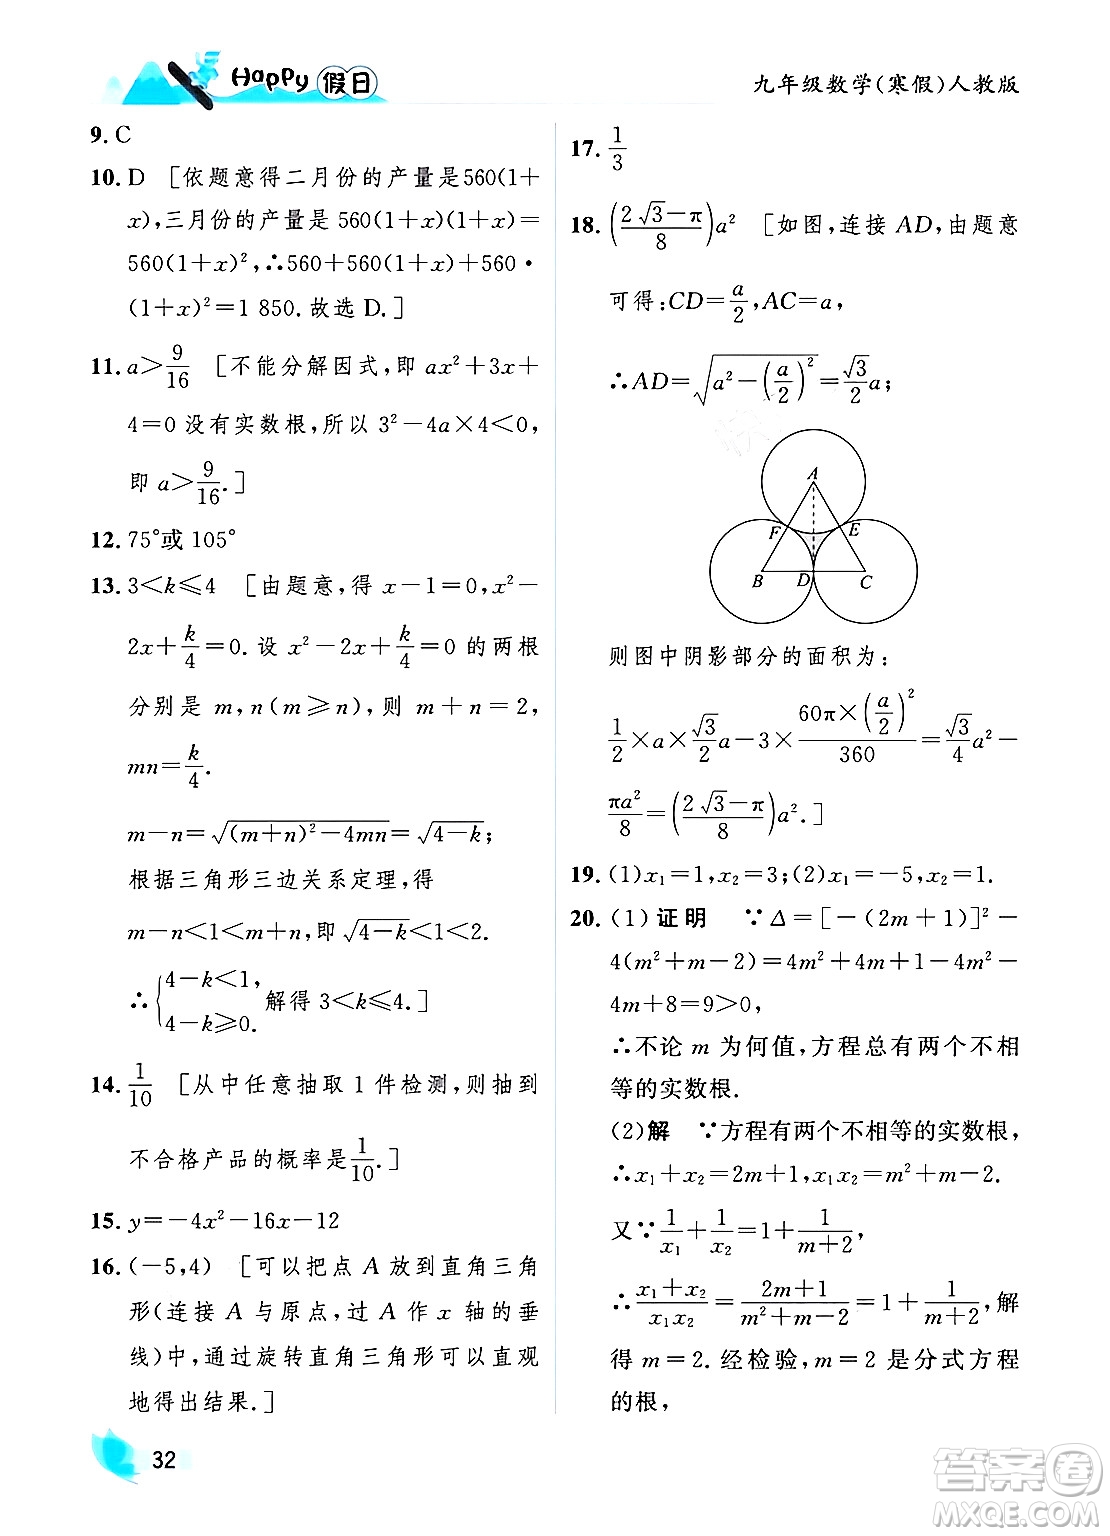 Happy 假日
九年级数学(寒假)人教版
9. C
10. D [依题意得二月份的产量是560(1+
x),三月份的产量是 560(1+x)(1+x)=
560(1+x)²,∴560+560(1+x)+560·
(1+x)²=1 850.故选 D.]
11. a>9/16 [不能分解因式,即 ax²+3x+
4=0 没有实数根,所以 3²-4a×4<0,
即 a>9/16.]
12. 75°或 105°
13. 3<k≤4 [由题意,得 x-1=0,x²-
2x+k/4=0.设 x²-2x+k/4=0 的两根
分别是 m,n(m≥n),则 m+n=2,
mn=k/4.
m-n=√((m+n)²-4mn)=√(4-k);
根据三角形三边关系定理,得
m-n<1<m+n,即√(4-k)<1<2.
∴{4-k<1,
4-k≥0. 解得 3<k≤4.]
14. 1/10 [从中任意抽取 1 件检测,则抽到
不合格产品的概率是1/10.]
15. y=-4x²-16x-12
16. (-5,4) [可以把点 A 放到直角三角
形(连接 A 与原点,过 A 作 x 轴的垂
线)中,通过旋转直角三角形可以直观
地得出结果.]
32
17. 1/3
18. ((2√3-π)/8)a² [如图,连接 AD,由题意
可得:CD=a/2,AC=a,
∴AD=√(a²-(a/2)²)=(√3/2)a;
A
F
E
B
D
C
则图中阴影部分的面积为:
1/2×a×(√3/2)a-3×(60π×(a/2)²)/360=(√3/4)a²-
πa²/8=((2√3-π)/8)a².]
19. (1)x₁=1,x₂=3;(2)x₁=-5,x₂=1.
20. (1)证明 ∵Δ=[-(2m+1)]²-
4(m²+m-2)=4m²+4m+1-4m²-
4m+8=9>0,
∴不论 m 为何值,方程总有两个不相
等的实数根.
(2)解 ∵方程有两个不相等的实数根,
∴x₁+x₂=2m+1,x₁x₂=m²+m-2.
又∵1/x₁+1/x₂=1+1/(m+2),
∴(x₁+x₂)/(x₁x₂)=(2m+1)/(m²+m-2)=1+1/(m+2),解
得 m=2.经检验,m=2 是分式方程
的根,
答案圈
MXQE.COM